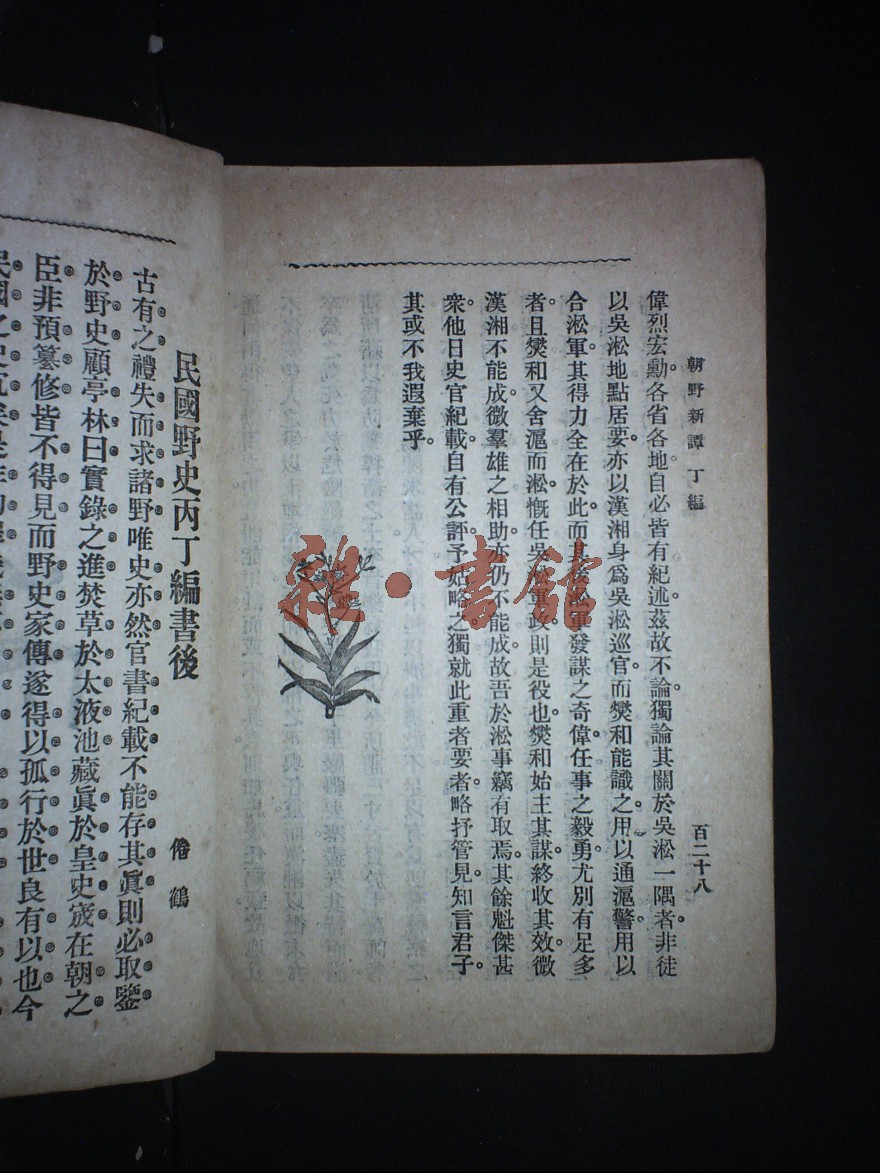 朝野新譚 丁編
百二十八
偉烈宏勳。各省各地自必皆有紀述。茲故不論。獨論其關於吳淞一隅者。非徒
以吳淞地點居要。亦以漢湘身爲吳淞巡官。而爕和能識之。用以通滬警。用以
合淞軍。其得力全在於此。而其後淞軍發謀之奇偉。任事之毅勇。尤別有足多
者。且爕和又舍滬而淞。慨任吳淞軍政。則是役也。爕和始主其謀。終收其效。微
漢湘不能成。微羣雄之相助。亦仍不能成。故吾於淞事竊有取焉。其餘魁傑甚
衆。他日史官紀載。自有公評。予姑略之。獨就此重者要者。略抒管見。知言君子。
其或不我遐棄乎。
民國野史丙丁編書後
倦鶴
古有之禮失而求諸野唯史亦然官書紀載不能存其眞則必取鑒
於野史顧亭林曰實錄之進焚草於太液池藏眞於皇史宬在朝之
臣非預纂修皆不得見而野史家傳遂得以孤行於世良有以也今
民國之史
雜·書館